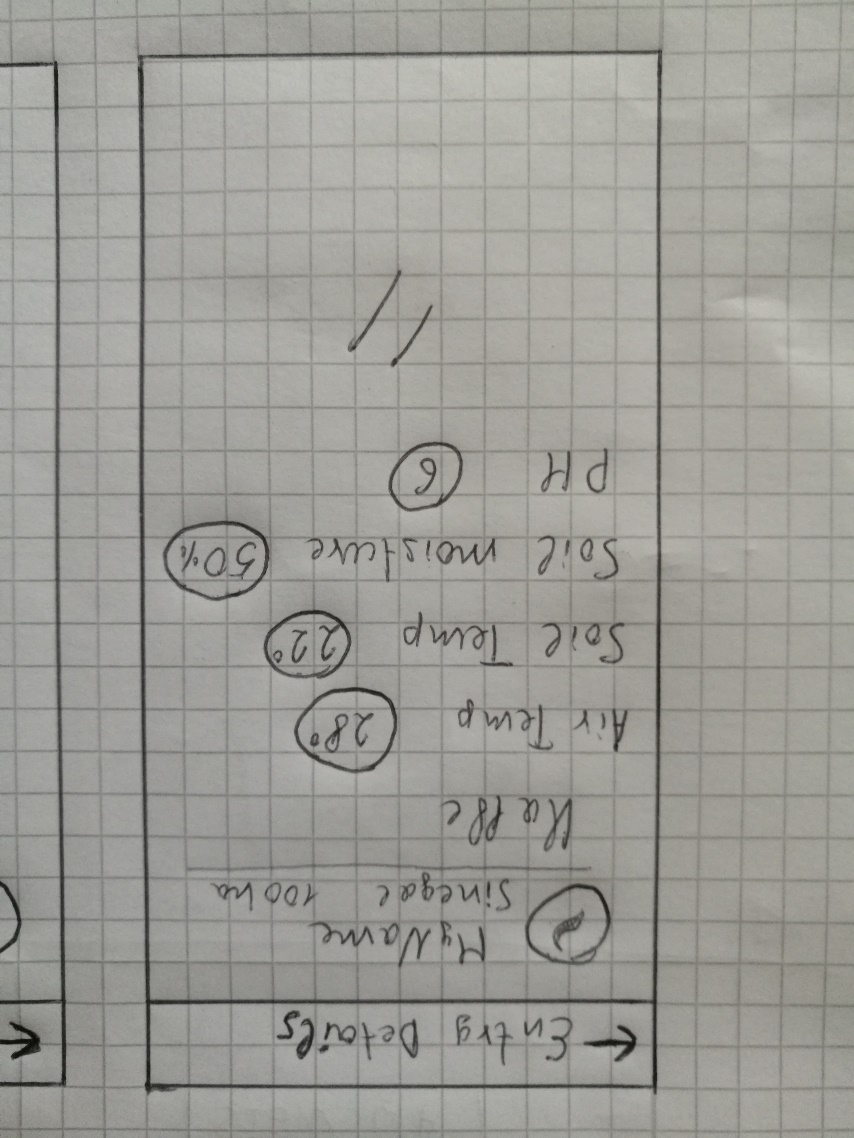 ← Entry Details
My Name
Sinegal 100ha
Kaffe
Air Temp 28°
Soil Temp 22°
Soil moisture 50%
PH 6